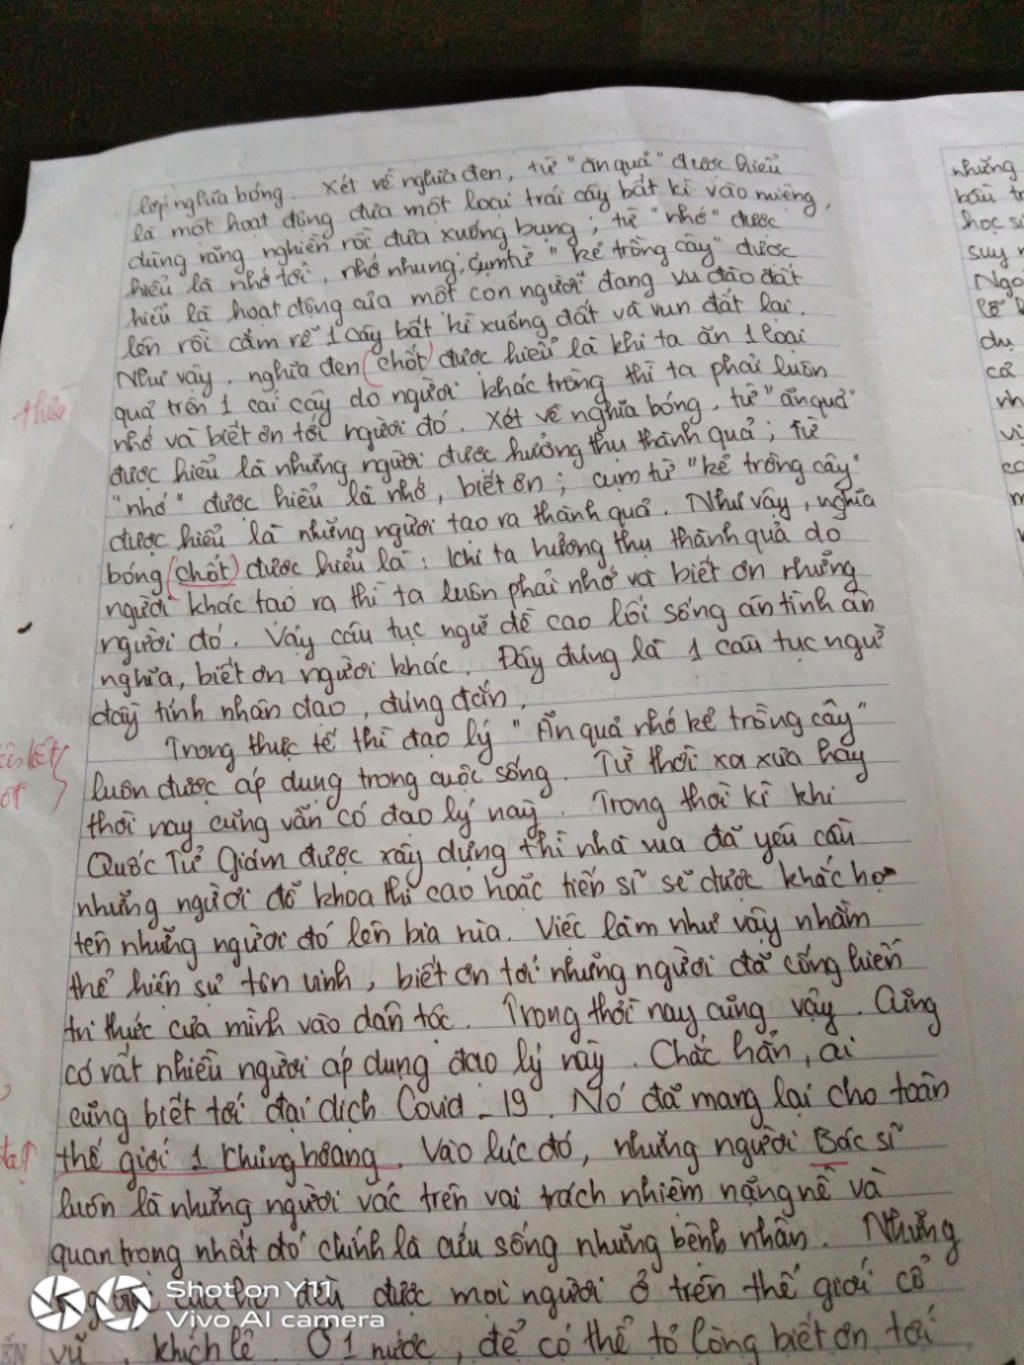 lớp nghĩa bóng. Xét về nghĩa đen, từ "ăn quả" được hiểu
là một hoạt động đưa một loại trái cây bất kì vào miệng,
dùng răng nghiền rồi đưa xuống bụng; từ "nhớ" được
hiểu là nhớ tới, nhớ nhung; cụm từ "kẻ trồng cây" được
hiểu là hoạt động của một con người đang vu đào đất
lên rồi cắm rễ 1 cây bất kì xuống đất và vun đất lại.
Như vậy, nghĩa đen (chốt) được hiểu là khi ta ăn 1 loại
quả trên 1 cái cây do người khác trồng thì ta phải luôn
thừa
nhớ và biết ơn tới người đó. Xét về nghĩa bóng, từ "ăn quả"
được hiểu là những người được hưởng thụ thành quả; từ
"nhớ" được hiểu là nhớ, biết ơn; cụm từ "kẻ trồng cây"
được hiểu là những người tạo ra thành quả. Như vậy, nghĩa
bóng (chốt) được hiểu là: khi ta hưởng thụ thành quả do
người khác tạo ra thì ta luôn phải nhớ và biết ơn những
người đó. Vậy câu tục ngữ đề cao lối sống ân tình ân
nghĩa, biết ơn người khác. Đây đúng là 1 câu tục ngữ
đầy tính nhân đạo, đúng đắn.
Trong thực tế thì đạo lý "Ăn quả nhớ kẻ trồng cây"
luôn được áp dụng trong cuộc sống. Từ thời xa xưa hay
thời nay cũng vẫn có đạo lý này. Trong thời kì khi
Quốc Tử Giám được xây dựng thì nhà vua đã yêu cầu
những người đỗ khoa thi cao hoặc tiến sĩ sẽ được khắc họ
tên những người đó lên bia rùa. Việc làm như vậy nhằm
thể hiện sự tôn vinh, biết ơn tới những người đã cống hiến
tri thức của mình vào dân tộc. Trong thời nay cũng vậy. Cũng
có rất nhiều người áp dụng đạo lý này. Chắc hẳn, ai
cũng biết tới đại dịch Covid_19. Nó đã mang lại cho toàn
thế giới 1 khủng hoảng. Vào lúc đó, những người Bác sĩ
luôn là những người vác trên vai trách nhiệm nặng nề và
quan trọng nhất đó chính là cứu sống những bệnh nhân. Những
của họ đều được mọi người ở trên thế giới cổ
vũ, khích lệ. Ở 1 nước, để có thể tỏ lòng biết ơn tới
những
học si
suy
Ngo
dụ
cả
nh
vi
Shot on Y11
Vivo AI camera